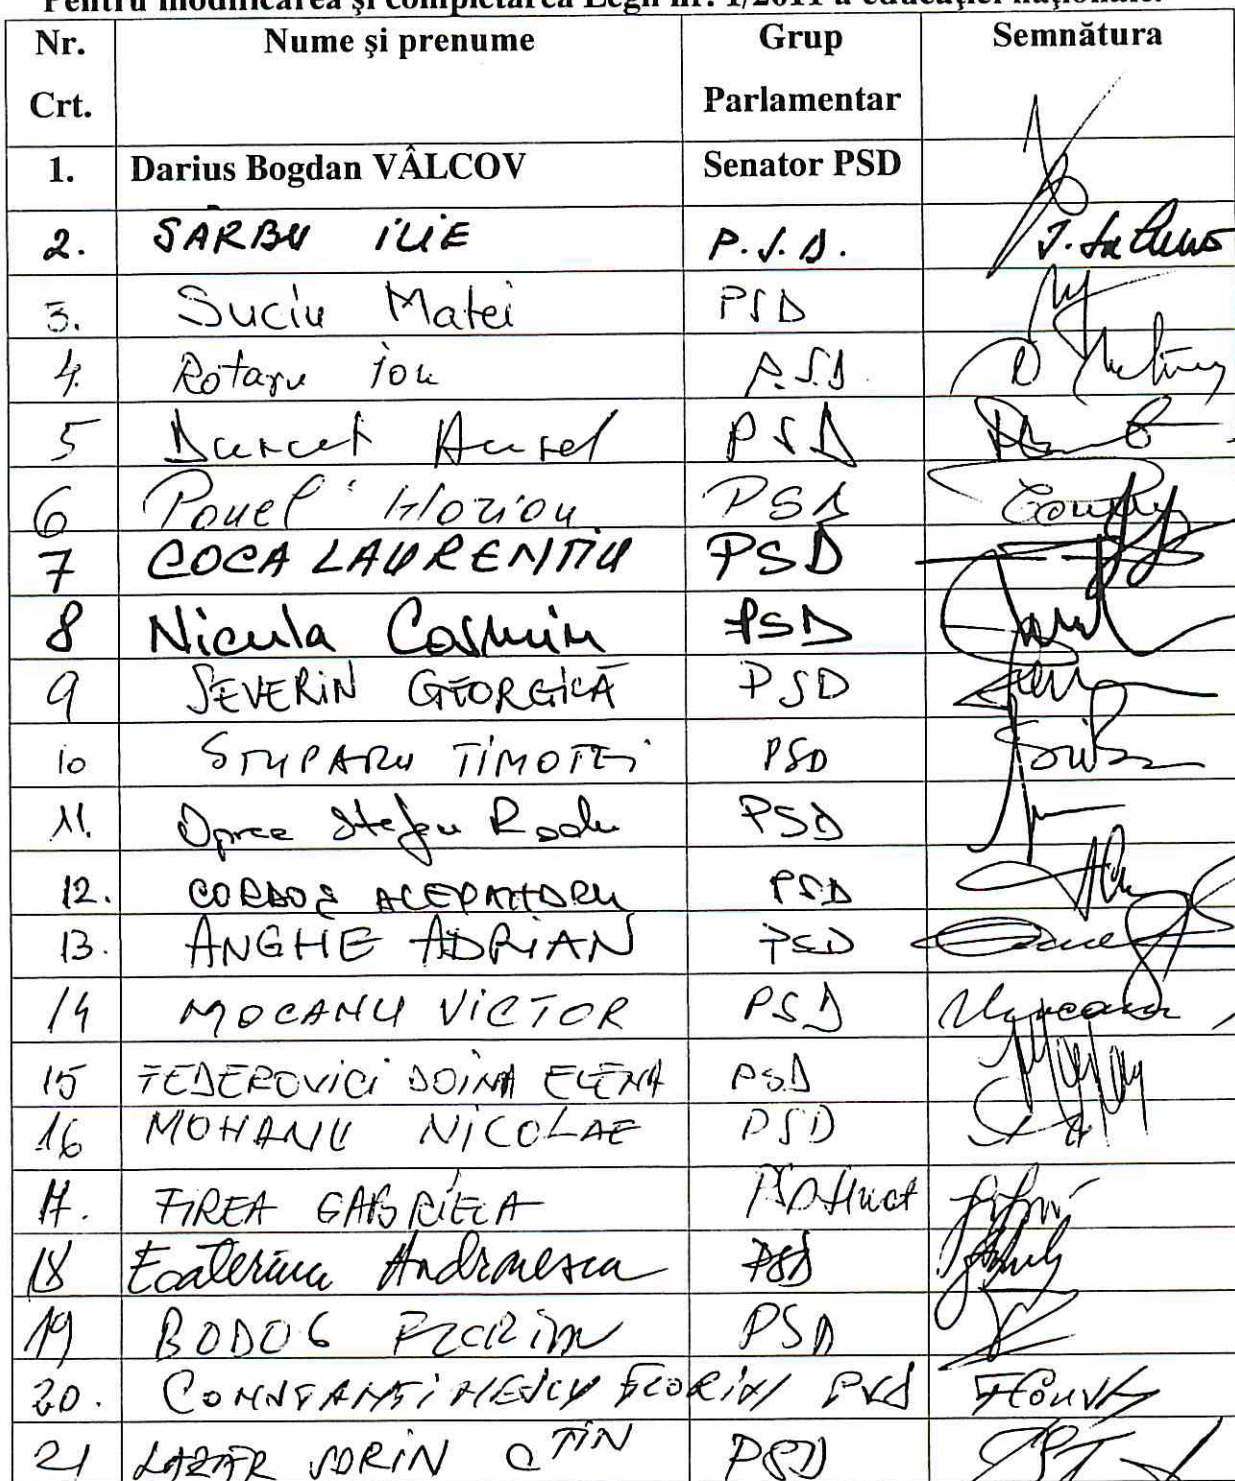 Pentru modificarea şi completarea Legii nr. 1/2011 a educaţiei naţionale.
Nr. Crt. Nume şi prenume Grup Parlamentar Semnătura
1. Darius Bogdan VÂLCOV Senator PSD
2. SÂRBU ILIE P.S.D.
3. Suciu Matei PSD
4. Rotaru Ion P.S.D.
5 Durcet Aurel PSD
6 Pavel Marian PSD
7 COCA LAURENTIU PSD
8 Nicula Cosmin PSD
9 SEVERIN GEORGICĂ PSD
10 STUPARU TIMOTEI PSD
11. Oprea Stefan Radu PSD
12. CORDOȘ ALEXANDRU PSD
13. ANGHEL ADRIAN PSD
14 MOCANU VICTOR PSD
15 FEDEROVICI DOINA ELENA PSD
16 MOHANU NICOLAE PSD
17. FIREA GABRIELA PSD
18 Ecaterina Andronescu PSD
19 BODOG FLORIAN PSD
20. CONSTANTINESCU FLORIN PSD
21 LAZAR SORIN CTIN PSD